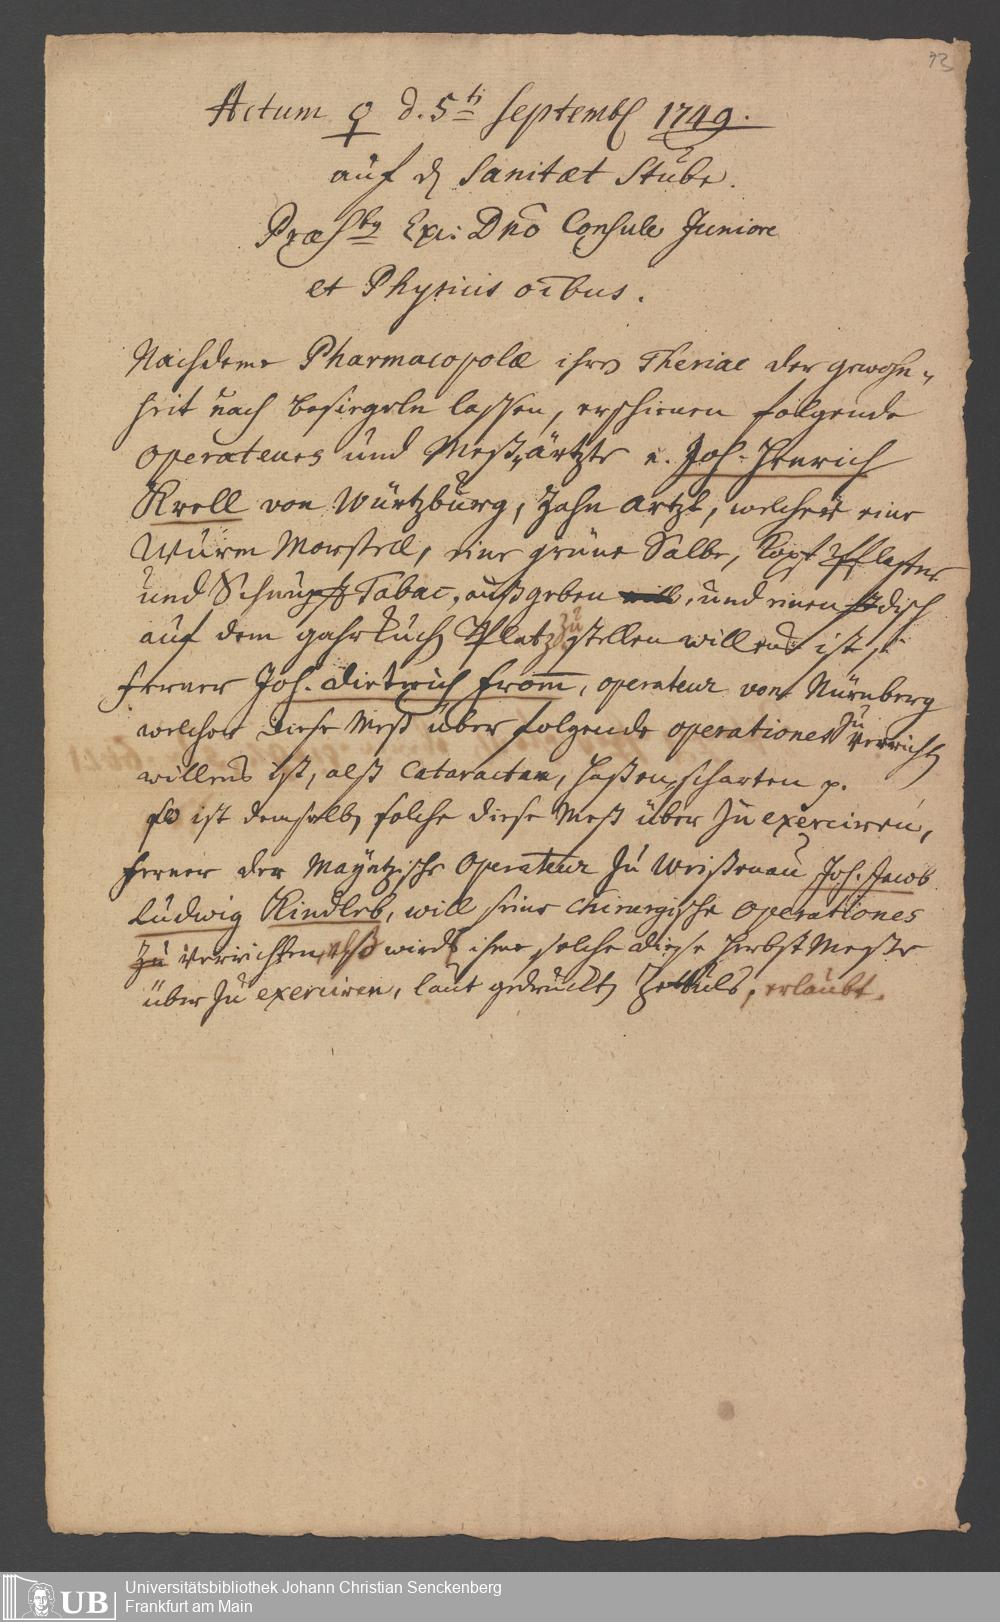 93
Actum ♀ d. 5ti Septembr 1749.
auf der Sanitæt Stube.
Præsbg Exc: Dño Consule Juniore
et Physicis oībus.
Nachdeme Pharmacopolæ ihren Theriac der gewohn„
heit nach besiegeln lassen, erschienen folgende
operateurs und Meß„ärtzte Joh. Henrich
Kroll von Würtzburg, Zahn Artzt, welcher eine
Wurm Morsell, eine grüne Salbe, Kopf Pflaster
und Schnupff Tabac, außgeben will, und einen disch
auf dem gahrkuchen Platz zu stellen willens ist,
ferner Joh. Dietrich From̄, operateur von Nürnberg
welcher diese Meß über folgende operationes zu verrichten
willens ist, alß Cataracten, Haßen„scharten p.
so ist demselben solche diese Meß über zu exerciren,
ferner der Mayntzische Operateur zu Weißenau Joh. Jacob
Ludwig Kindleb, will seine Chirurgische Operationes
zu verrichten, alß wird ihme solche diese Herbst Messe
über zu exerciren, laut gedruckten Zettuls, erlaubt.
UB
Universitätsbibliothek Johann Christian Senckenberg
Frankfurt am Main